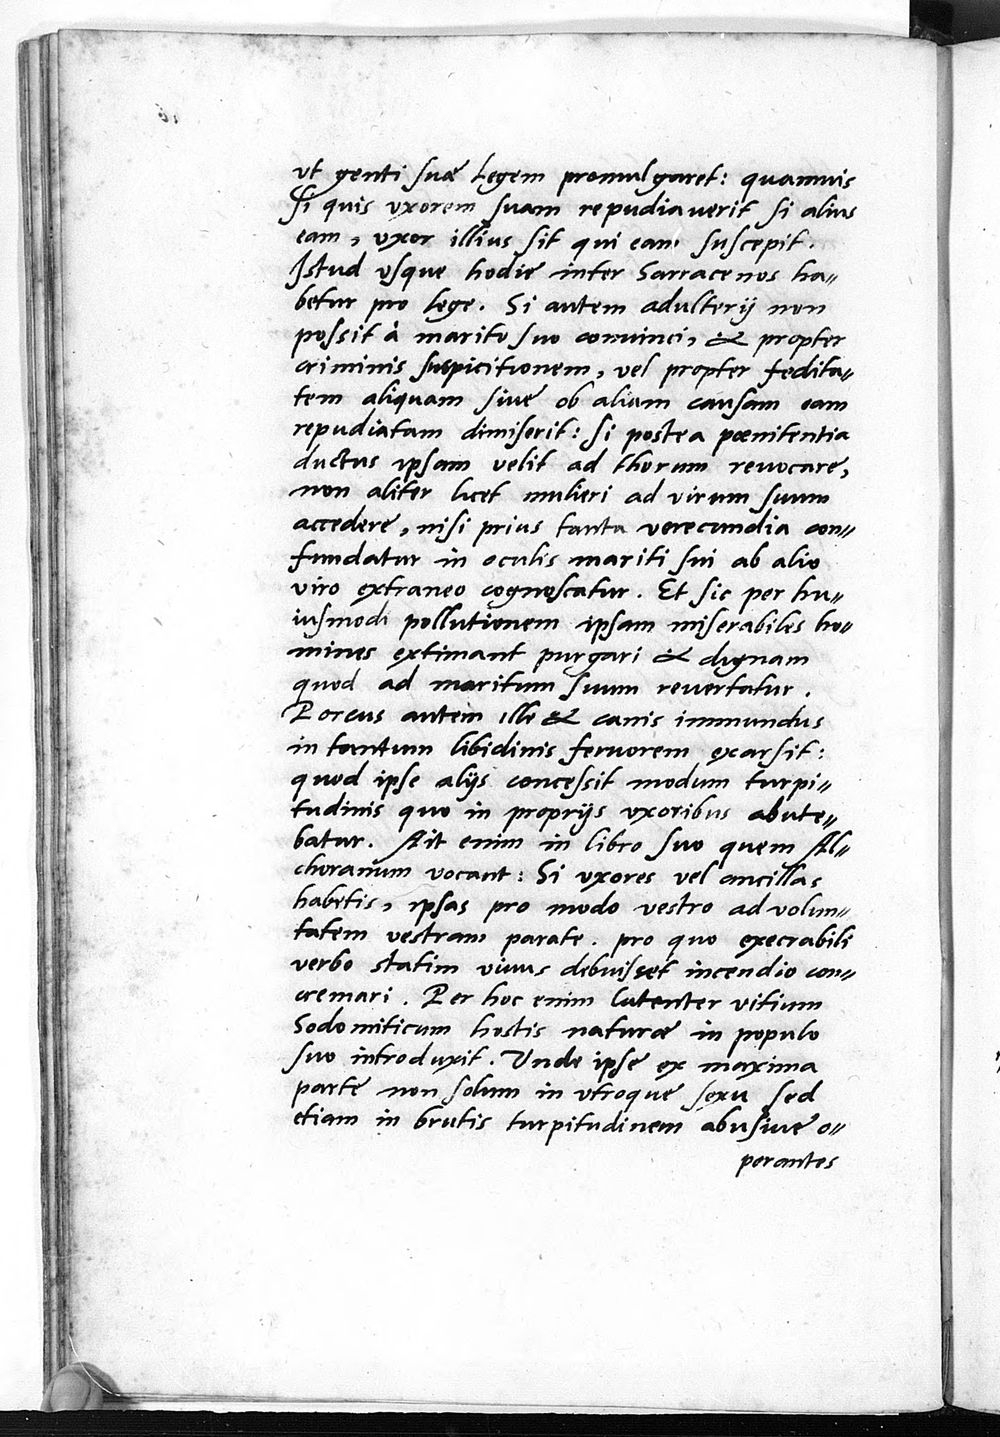 vt genti suæ Legem promulgaret: quamuis
Si quis vxorem suam repudiauerit si alius
eam, vxor illius sit qui eam suscepit.
Istud vsque hodie inter Sarracenos ha„
betur pro lege. Si autem adulterij non
possit à marito suo conuinci, & propter
criminis suspicitionem, vel propter fedita„
tem aliquam siue ob aliam causam eam
repudiatam dimiserit: si postea pœnitentia
ductus ipsam velit ad thorum reuocare,
non aliter licet mulieri ad virum suum
accedere, nisi prius tanta verecundia con„
fundatur in oculis mariti sui ab alio
viro extraneo cognoscatur. Et sic per hu„
iusmodi pollutionem ipsam miserabiles ho„
mines extimant purgari & dignam
quod ad maritum suum reuertatur.
Porcus autem ille & canis immundus
in tantum libidinis feruorem exarsit:
quod ipse alijs concessit modum turpi„
tudinis quo in proprijs vxoribus abute„
batur. Ait enim in libro suo quem Al„
choranum vocant: Si vxores vel ancillas
habetis, ipsas pro modo vestro ad volun„
tatem vestram parate. pro quo execrabili
verbo statim viuus debuisset incendio con„
cremari. Per hoc enim latenter vitium
Sodomiticum hostis naturæ in populo
suo introduxit. Unde ipse ex maxima
parte non solum in vtroque sexu sed
etiam in brutis turpitudinem abusiue o„
perantes